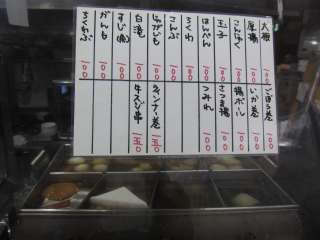 大根 100
厚揚 100
こんにゃく 100
玉子 100
はんぺん 100
ちくわ 100
こんぶ 100
じゃがいも 100
白滝 100
すじ(魚) 100
がんも 100
ちくわぶ 100
ごぼう巻 100
いか巻 100
揚ボール 100
さつま揚 100
つみれ 100
ウィンナー巻 150
牛スジ串 150